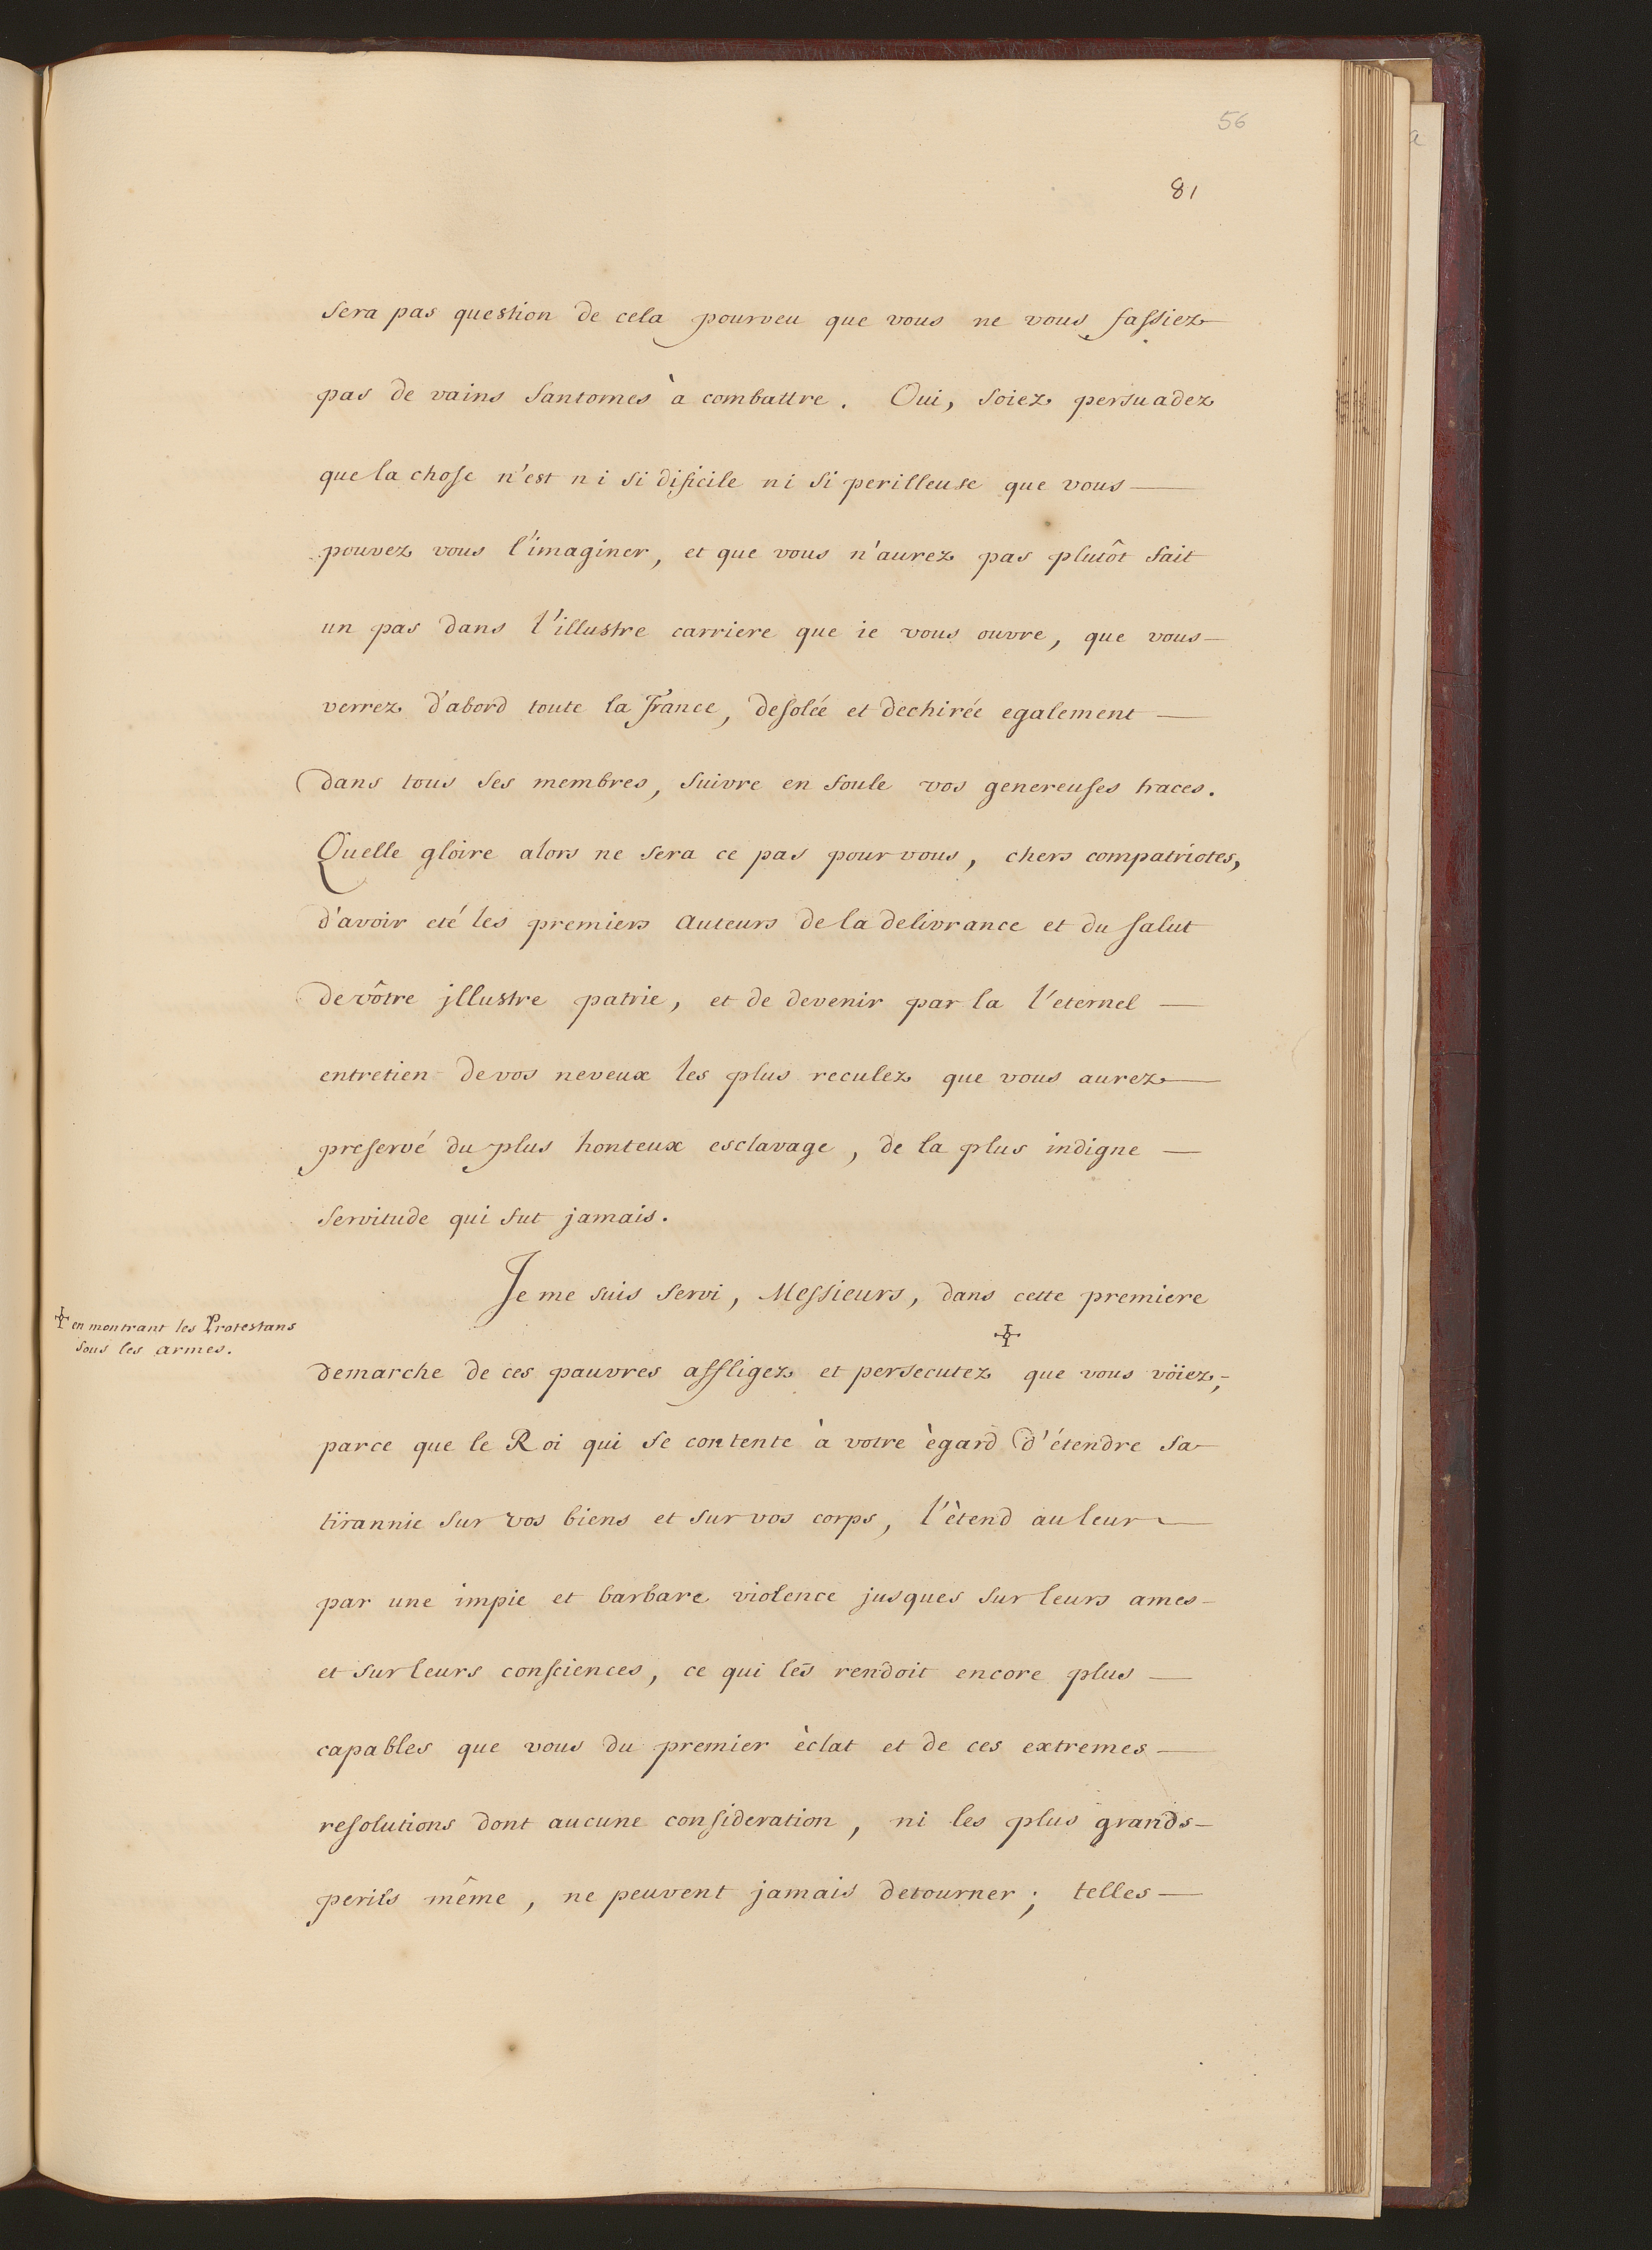 56
81
sera pas question de cela pourveu que vous ne vous fassiez
pas de vains fantomes à combattre. Oui, soiez persuadez
que la chose n'est ni si dificile ni si perilleuse que vous —
pouvez vous l'imaginer, et que vous n'aurez pas plutôt fait
un pas dans l'illustre carriere que ie vous ouvre, que vous —
verrez d'abord toute la France, desolée et dechirée egalement —
dans tous ses membres, suivre en foule vos genereuses traces.
Quelle gloire alors ne sera ce pas pour vous, chers compatriotes,
d'avoir eté les premiers auteurs de la delivrance et du salut
de vôtre jllustre patrie, et de devenir par la l'eternel —
entretien de vos neveux les plus reculez que vous aurez —
preservé du plus honteux esclavage, de la plus indigne —
servitude qui fut jamais.
Je me suis servi, Messieurs, dans cette premiere
✣ en montrant les Protestans
sous les armes.
✣
demarche de ces pauvres affligez et persecutez que vous vöiez,-
parce que le Roi qui se contente à votre ègard d'étendre sa
tïrannie sur vos biens et sur vos corps, l'ètend au leur —
par une impie et barbare violence jusques sur leurs ames -
et sur leurs consciences, ce qui les rendoit encore plus —
capables que vous du premier èclat et de ces extremes —
resolutions dont aucune consideration, ni les plus grands -
perils même, ne peuvent jamais detourner; telles —